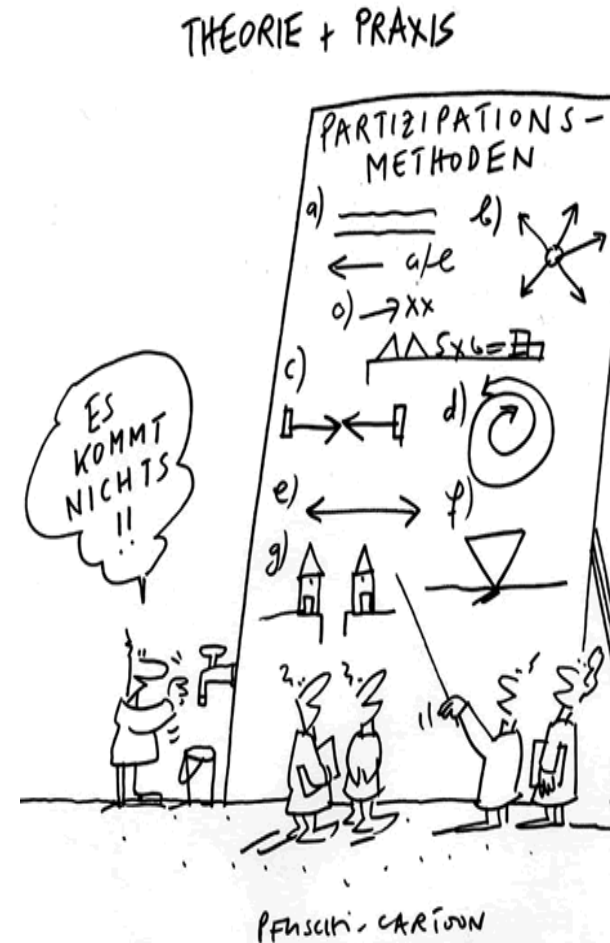 THEORIE + PRAXIS
PARTIZIPATIONS-
METHODEN
a)
b)
a/e
o) → xx
5x6=
c)
d)
e)
f)
g)
ES
KOMMT
NICHTS
!!
PFUSCHI-CARTOON